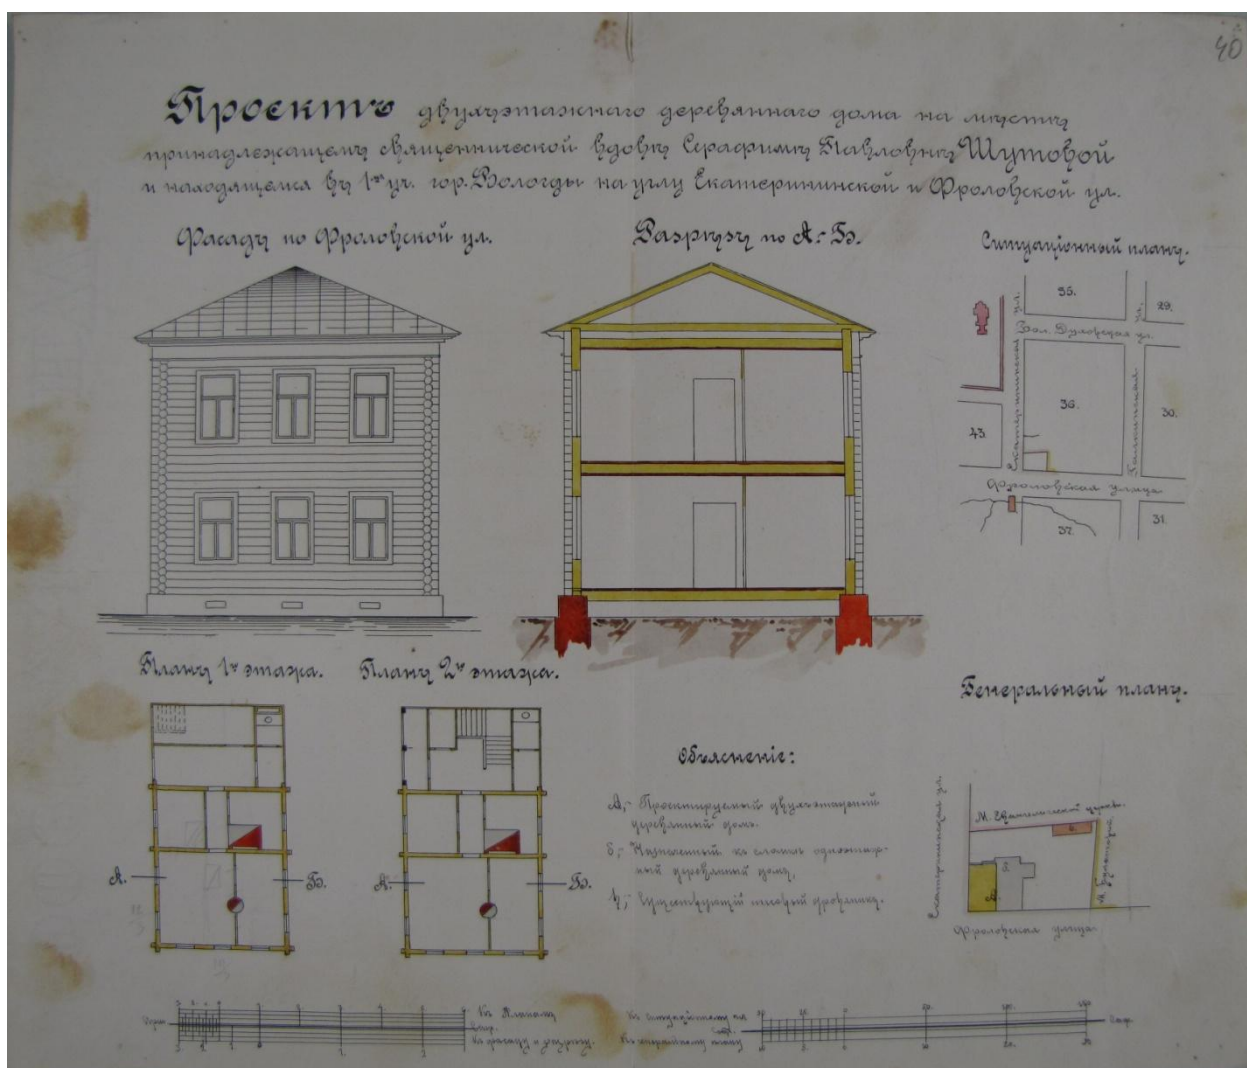 40
Проектъ двухъэтажнаго деревяннаго дома на мѣстѣ
принадлежащемъ священнической вдовѣ Серафимѣ Павловнѣ Шутовой
и находящемся въ 1мъ уч. гор. Вологды на углу Екатерининской и Фроловской ул.
Фасадъ по Фроловской ул.
Разрѣзъ по А-Б.
Ситуаціонный планъ.
95.
29.
ул.
ул.
Екатерининская
Галкинская
96.
30.
43.
Фроловская улица
97.
31.
Планъ 1го этажа.
Планъ 2го этажа.
А.
Б.
А.
Б.
Генеральный планъ.
Объясненіе:
А,- Проектируемый двухъэтажный
деревянный домъ.
б,- Назначенный къ сломкѣ одноэтаж-
ный деревянный домъ,
в,- Существующій дровяникъ.
Екатерининская ул.
М. церкви.
Фроловская улица
Къ планамъ
Къ фасаду и разрѣзу.
Къ генеральному плану